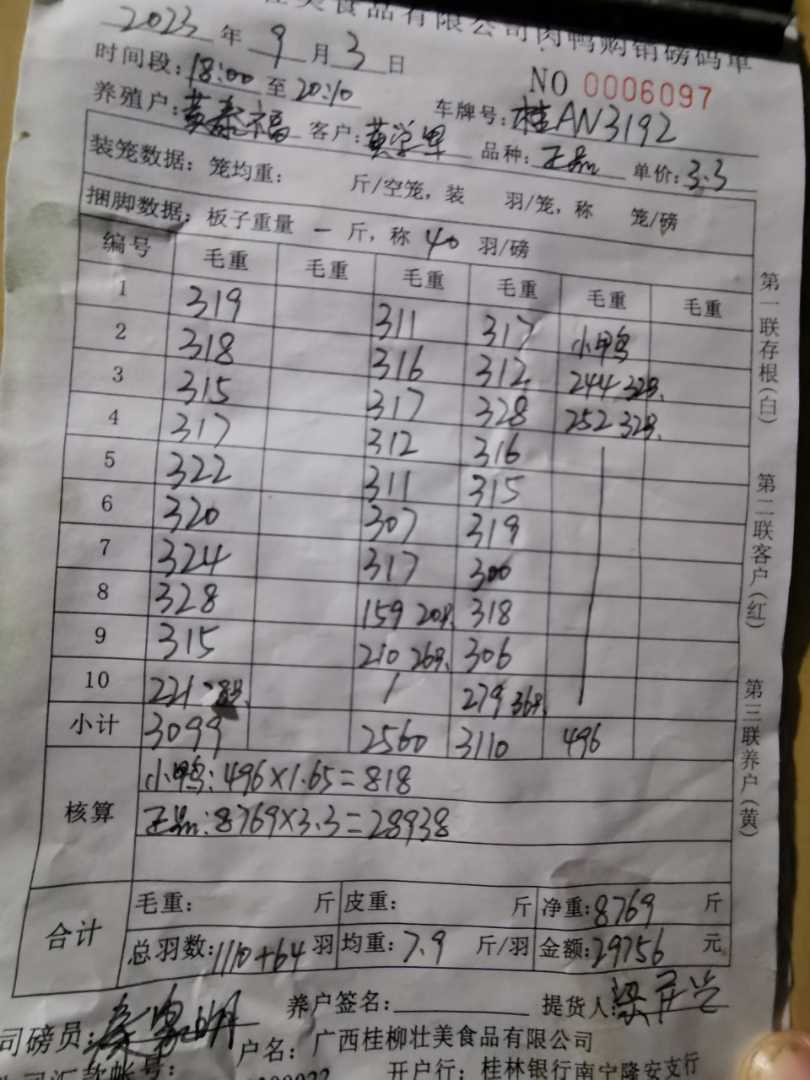 桂美食品有限公司肉鸭购销磅码单
2023年9月3日
时间段:18:00至20:10 NO 0006097
养殖户:黄泰福 客户: 车牌号:桂AN3192
品种:正品 单价:3.3
装笼数据:笼均重: 斤/空笼,装 羽/笼,称 笼/磅
捆脚数据:板子重量 一 斤,称 40 羽/磅
编号 毛重 毛重 毛重 毛重 毛重 毛重
1 319 311 317 小鸭
2 318 316 312 244 32羽.
3 315 317 328 252 32羽.
4 317 312 316
5 322 311 315
6 320 307 319
7 324 317 300
8 328 159 20羽. 318
9 315 210 26羽. 306
10 221 28羽. / 279 36羽.
小计 3099 2560 3110 496
核算 小鸭:496×1.65=818
正品:8769×3.3=28938
合计 毛重: 斤 皮重: 斤 净重:8769 斤
总羽数:1110+64 羽 均重:7.9 斤/羽 金额:29756 元
养户签名: 提货人:
司磅员:
户名:广西桂柳壮美食品有限公司
公司汇款帐号: 开户行:桂林银行南宁隆安支行
第一联存根(白)
第二联客户(红)
第三联养户(黄)